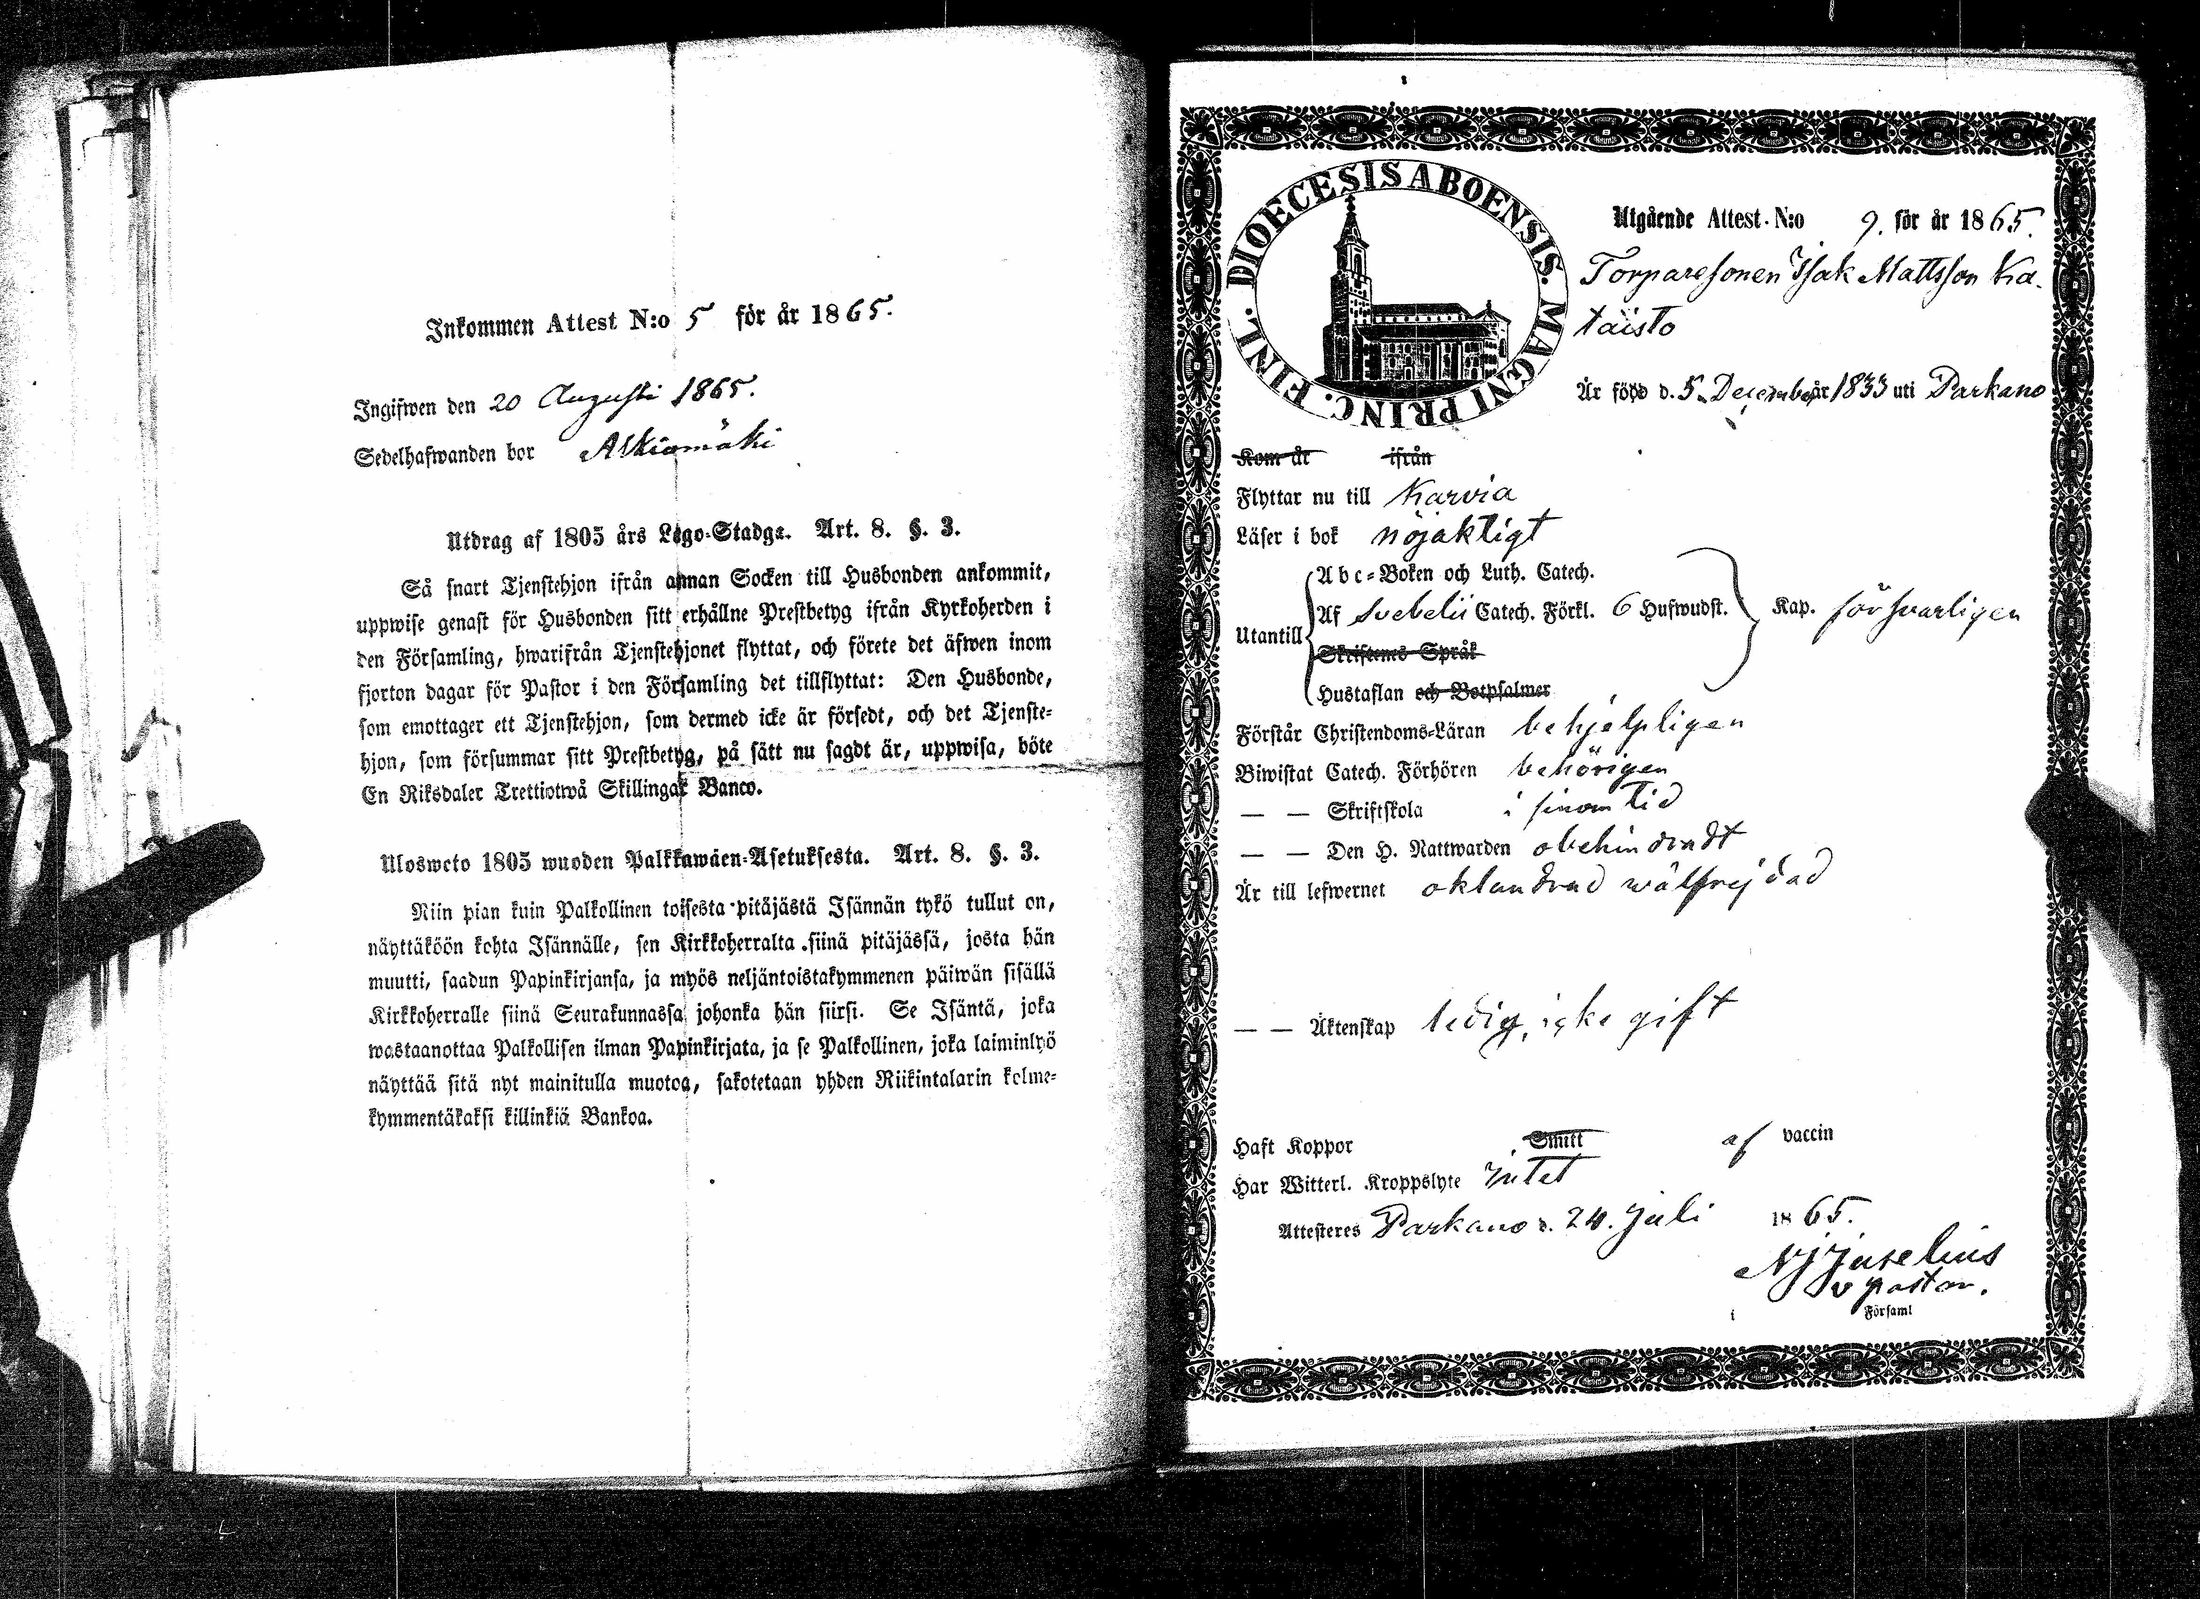 Inkommen Attest N:o 5 för år 1865.
Ingifwen den 20 Augusti 1865.
Sedelhafwanden bor Alkiomäki
Utdrag af 1805 års Lego-Stadga. Art. 8. §. 3.
Så snart Tjenstehjon ifrån annan Socken till Husbonden ankommit,
uppwise genast för Husbonden sitt erhållne Prestbetyg ifrån Kyrkoherden i
den Församling, hwarifrån Tjenstehjonet flyttat, och förete det äfwen inom
fjorton dagar för Pastor i den Församling det tillflyttat: Den Husbonde,
som emottager ett Tjenstehjon, som dermed icke är försedt, och det Tjenste-
hjon, som försummar sitt Prestbetyg, på sätt nu sagdt är, uppwisa, böte
En Riksdaler Trettiotwå Skillingar Banco.
Uloswcto 1805 wuoden Palkkawäen-Asetuksesta. Art. 8. §. 3.
Niin pian kuin Palkollinen toisesta pitäjästä Isännän tykö tullut on,
näyttäköön kohta Isännälle, sen Kirkkoherralta siinä pitäjässä, josta hän
muutti, saadun Papinkirjansa, ja myös neljäntoistakymmenen päiwän sisällä
Kirkkoherralle siinä Seurakunnassa johonka hän siirsi. Se Isäntä, joka
wastaanottaa Palkollisen ilman Papinkirjata, ja se Palkollinen, joka laiminlyö
näyttää sitä nyt mainitulla muotoa, sakotetaan yhden Riikintalarin kolme-
kymmentäkaksi killinkiä Bankoa.
DIOECESIS ABOENSIS. MAGNI PRINC. FINL.
Utgående Attest. N:o 9. för år 1865.
Torparesonen Isak Mattsson Ka-
taisto
Är född d. 5 December år 1833 uti Parkano
Kom år ifrån
Flyttar nu till Karvia
Läser i bok nöjaktigt
Abc-Boken och Luth. Catech.
Utantill Af Svebelii Catech. Förkl. 6 Hufwudst. Kap. försvarligen
Skriftenes Språk
Hustaflan och Botpsalmer
Förstår Christendoms-Läran behjelpligen
Biwistat Catech. Förhören behörigen
— — Skriftskola i sinom tid
— — Den H. Nattwarden obehindradt
Är till lefwernet oklandrad wälfrejdad
— — Äktenskap ledig, icke gift
Haft Koppor Smitt af vaccin
Har Witterl. Kroppslyte Intet
Attesteres Parkano d. 24. Juli 1865.
Juselius
v pastor.
i Församl